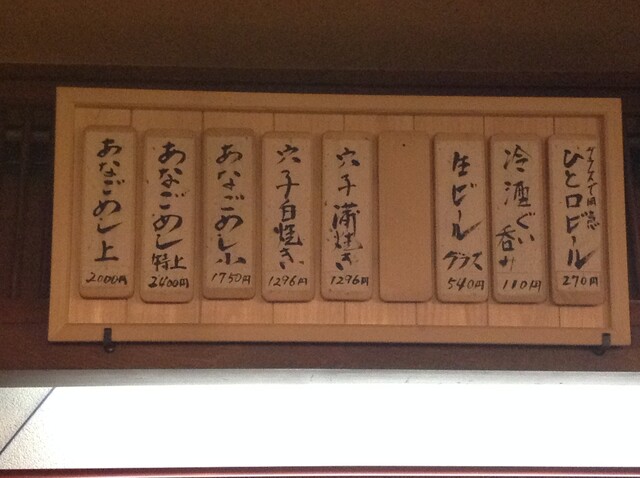 グラスで用意
ひと口ビール
270円
冷酒ぐい呑み
110円
生ビール
グラス
540円
穴子蒲焼き
1296円
穴子白焼き
1296円
あなごめし小
1750円
あなごめし
特上
2400円
あなごめし上
2000円